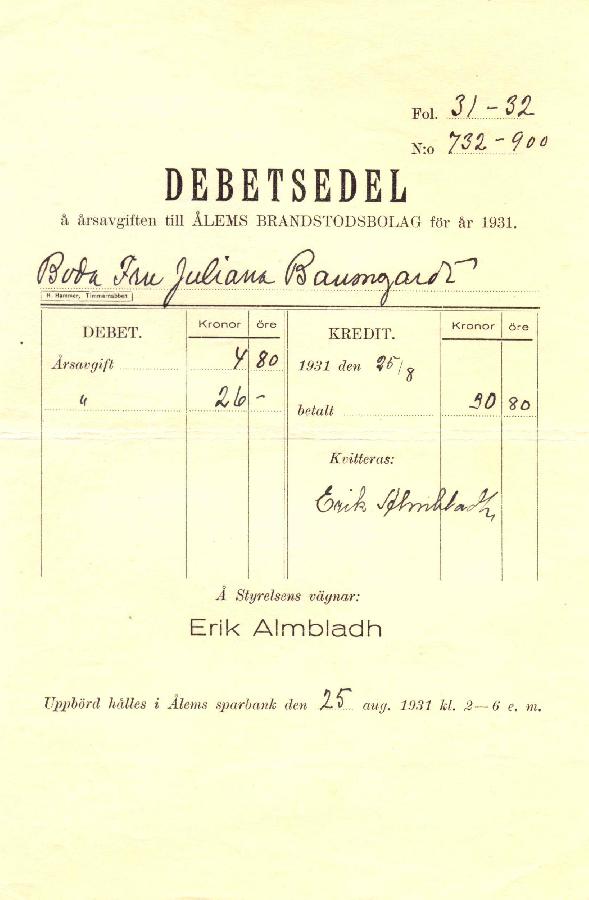 Fol. 31 - 32
N:o 732 - 900
DEBETSEDEL
å årsavgiften till ÅLEMS BRANDSTODSBOLAG för år 1931.
Boda Fru Juliana Baumgardt
H. Hammer, Timmernabben
DEBET. Kronor öre KREDIT. Kronor öre
Årsavgift 4 80 1931 den 25/8
" 26 - betalt 30 80
Kvitteras:
Erik Almbladh
Å Styrelsens vägnar:
Erik Almbladh
Uppbörd hålles i Ålems sparbank den 25 aug. 1931 kl. 2—6 e. m.